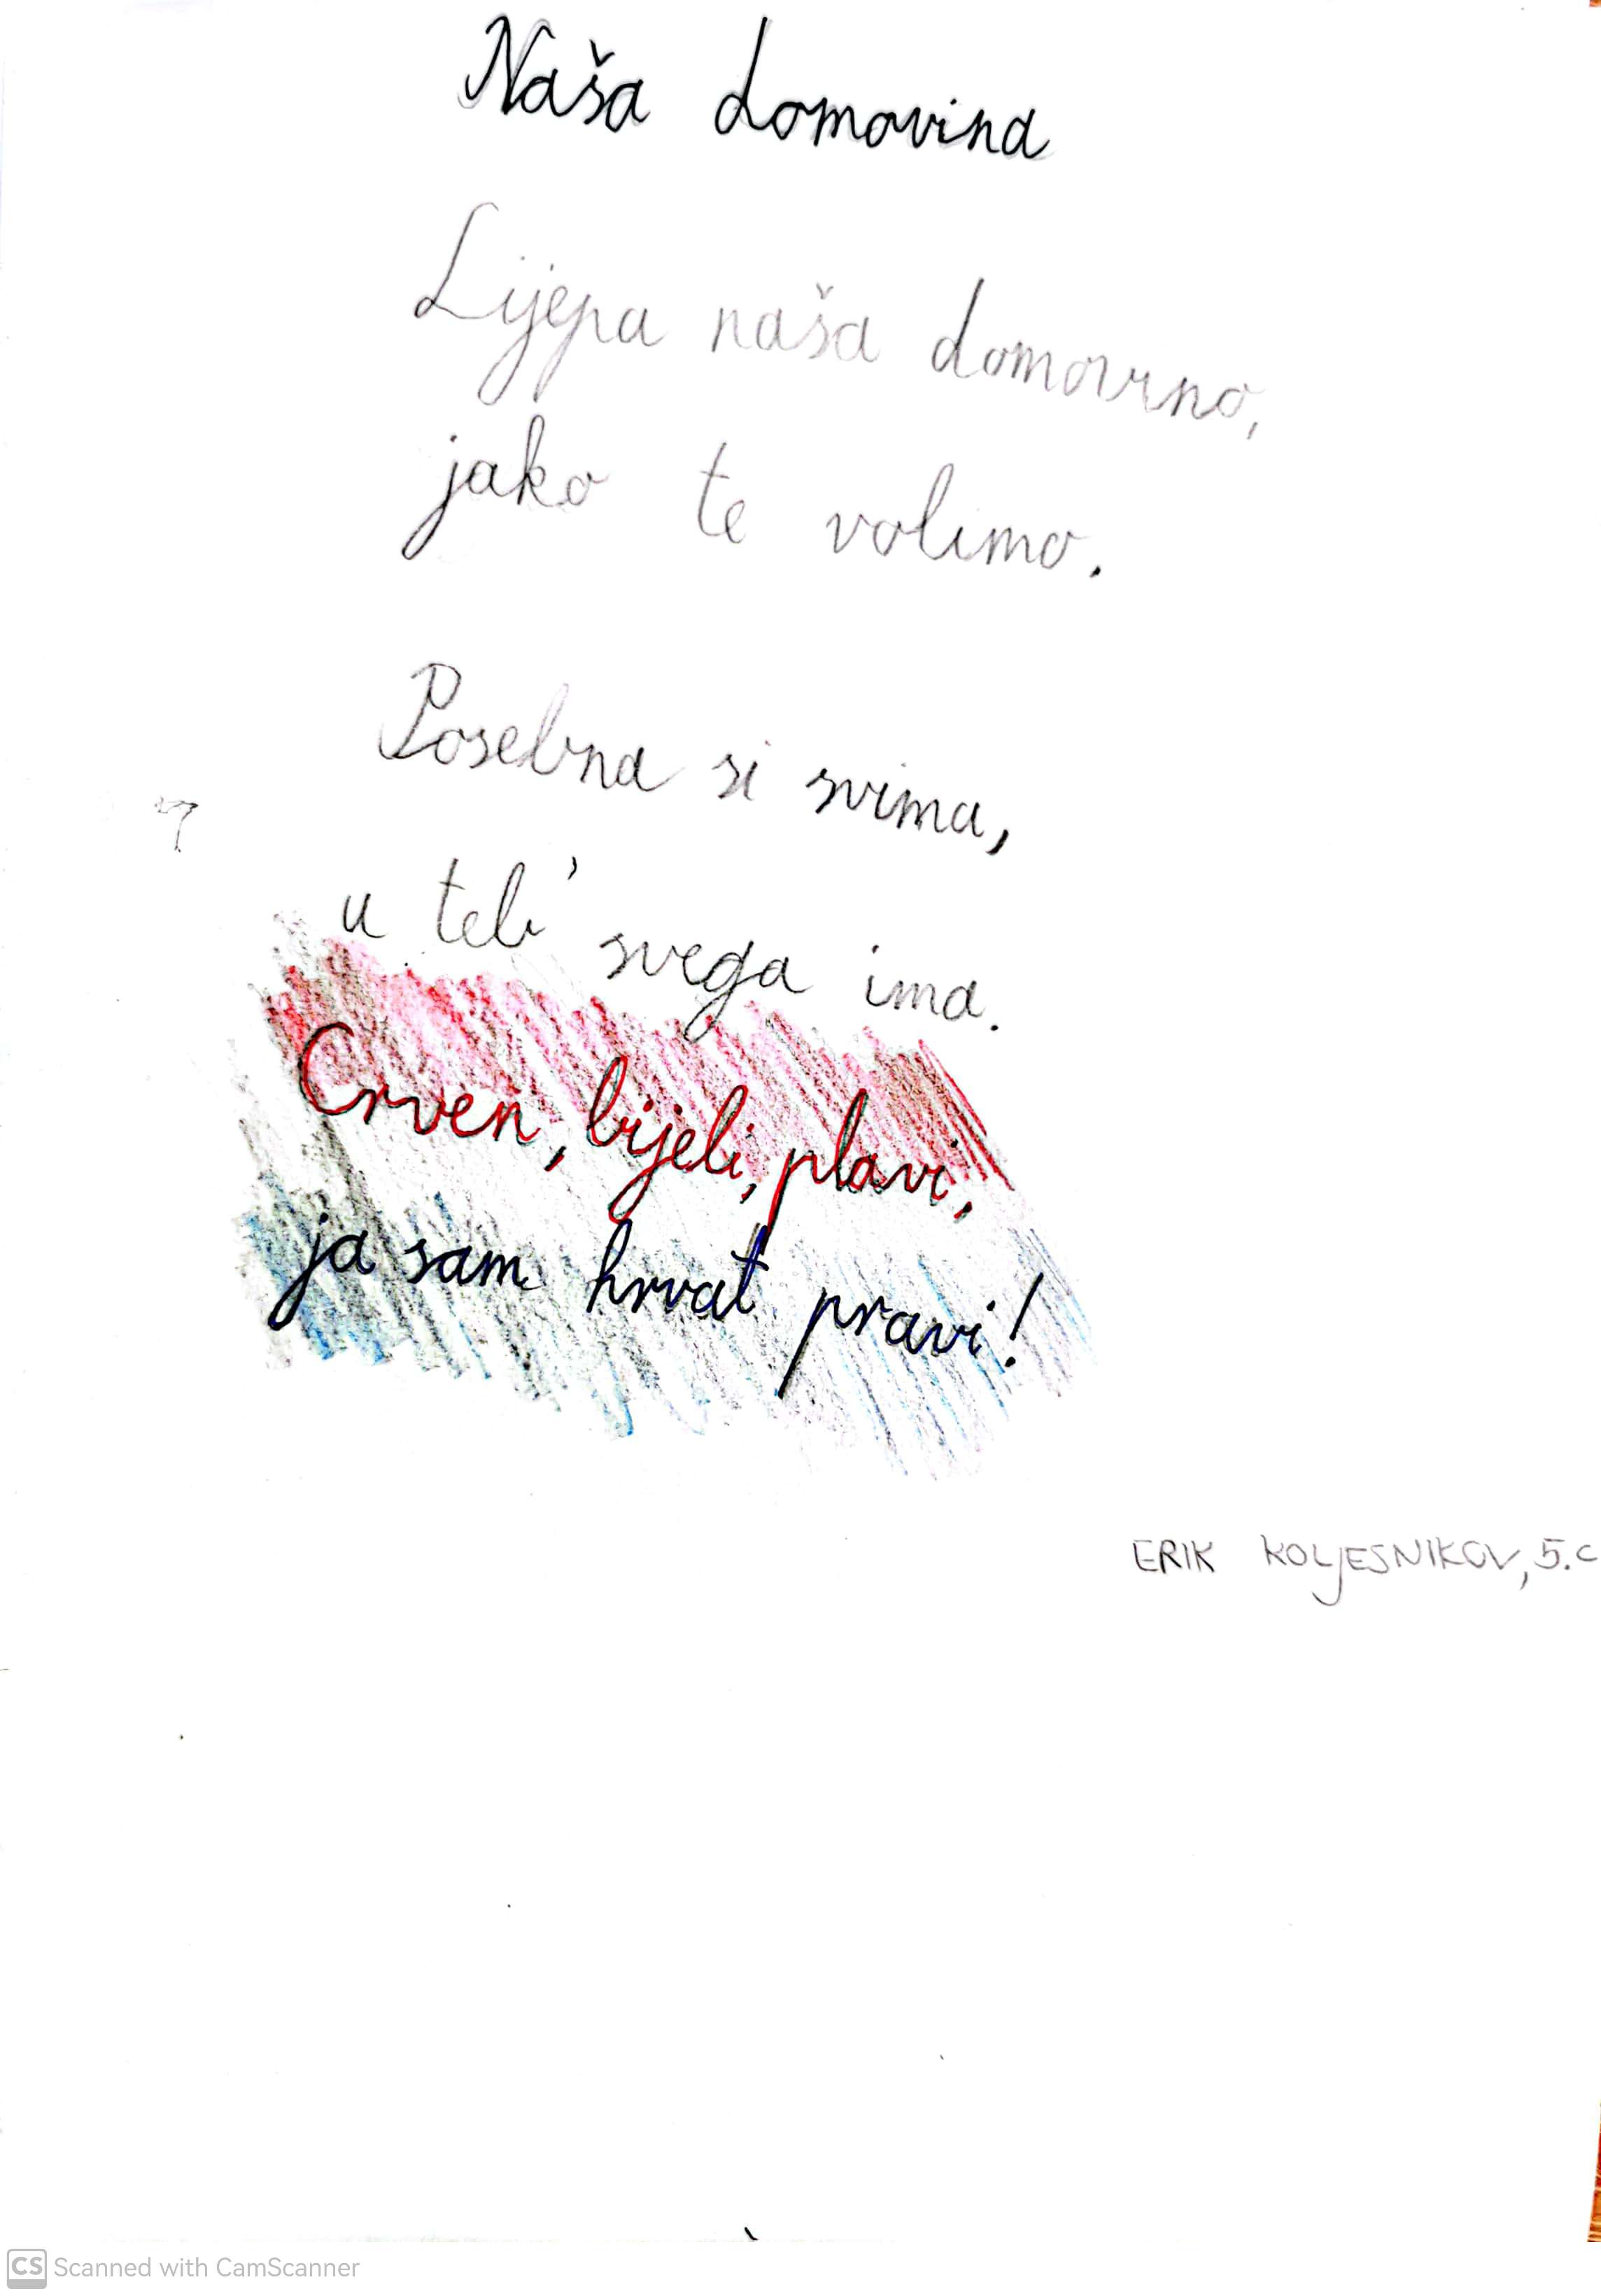 Naša domovina
Lijepa naša domovino,
jako te volimo.
Posebna si svima,
u teb' svega ima.
Crven, bijeli, plavi,
ja sam hrvat pravi!
ERIK KOLJESNIKOV, 5.c
CS Scanned with CamScanner